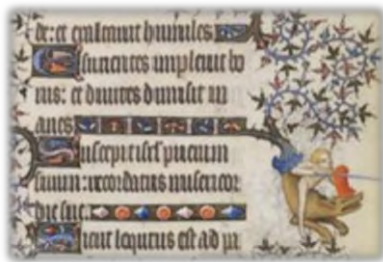 de: et exaltavit humiles
Esurientes implevit bo
nis: et divites dimisit in
anes
Suscepit isrl puerum
suum: recordatus misericor
die sue.
Sicut locutus est ad pa